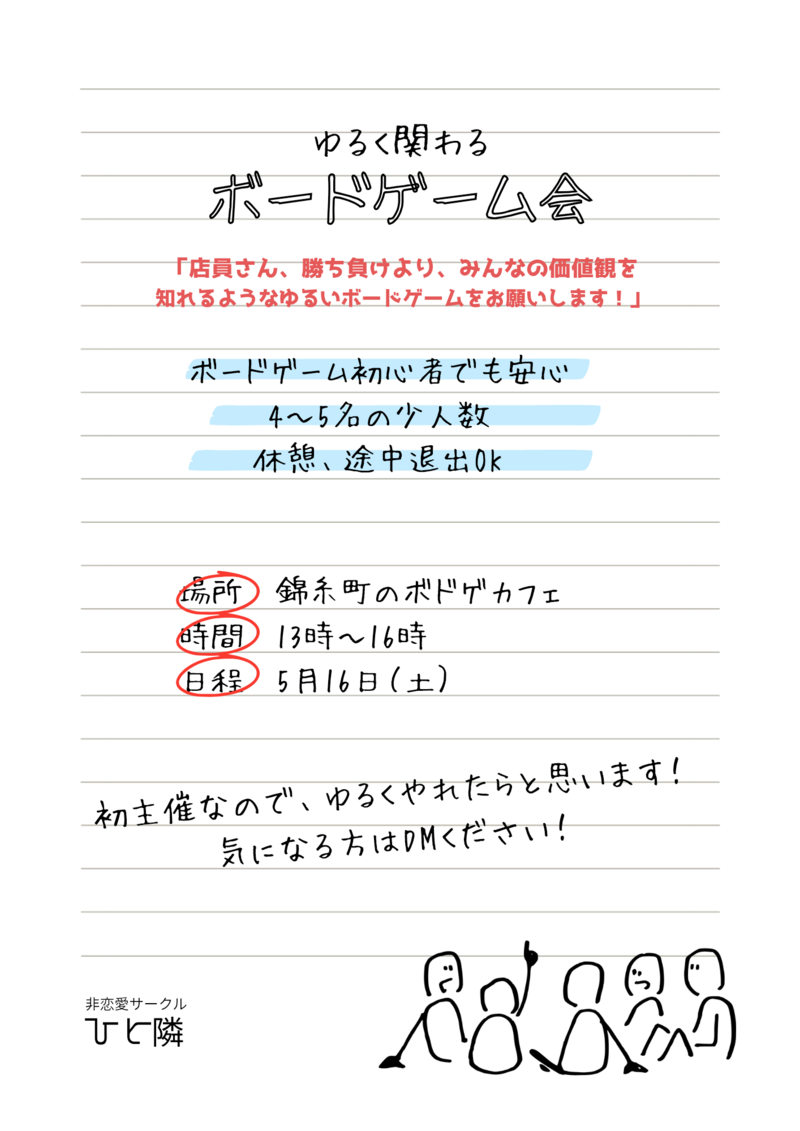 ゆるく関わる
ボードゲーム会
「店員さん、勝ち負けより、みんなの価値観を
知れるようなゆるいボードゲームをお願いします！」
ボードゲーム初心者でも安心
4〜5名の少人数
休憩、途中退出OK
場所 錦糸町のボドゲカフェ
時間 13時〜16時
日程 5月16日(土)
初主催なので、ゆるくやれたらと思います!
気になる方はDMください!
非恋愛サークル
ひと隣